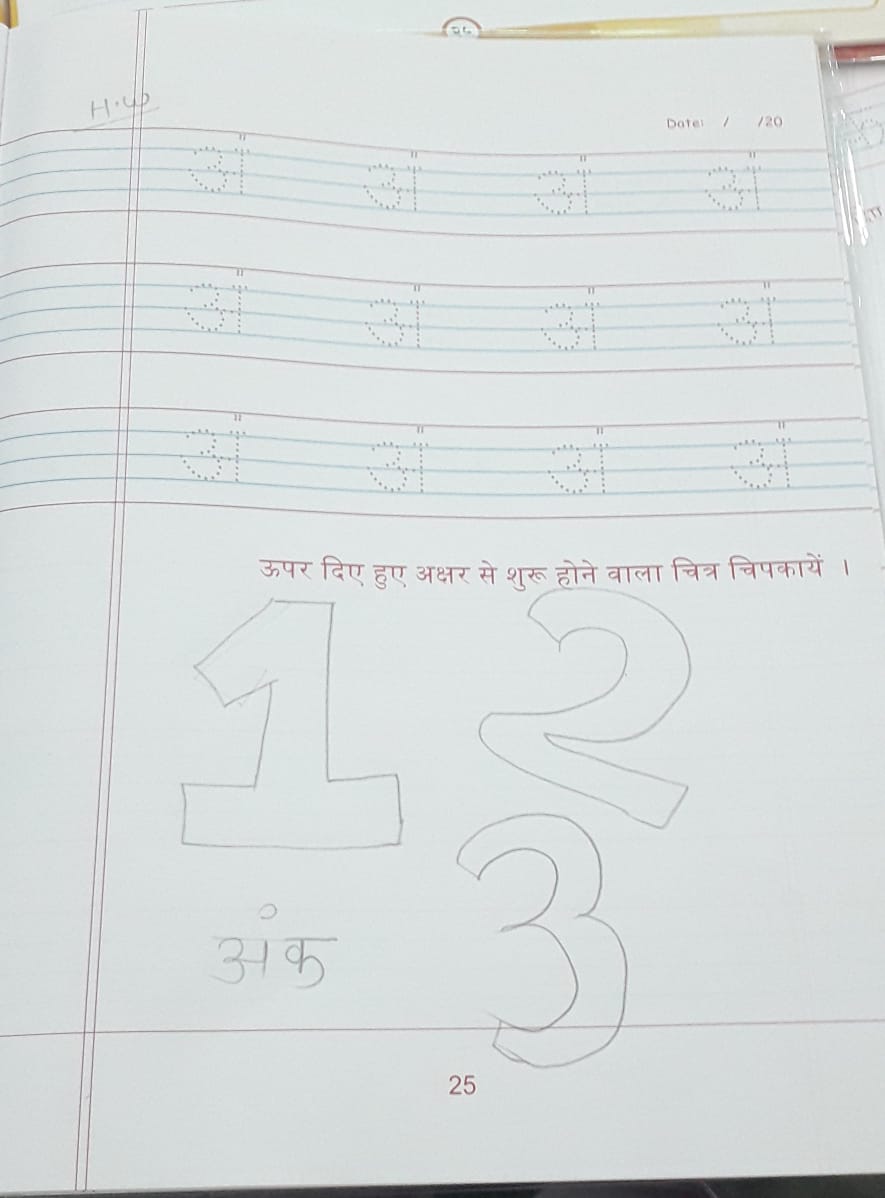 H.W
Date: / /20
अं अं अं अं
अं अं अं अं
अं अं अं अं
ऊपर दिए हुए अक्षर से शुरू होने वाला चित्र चिपकायें ।
1 2
3
अंक
25